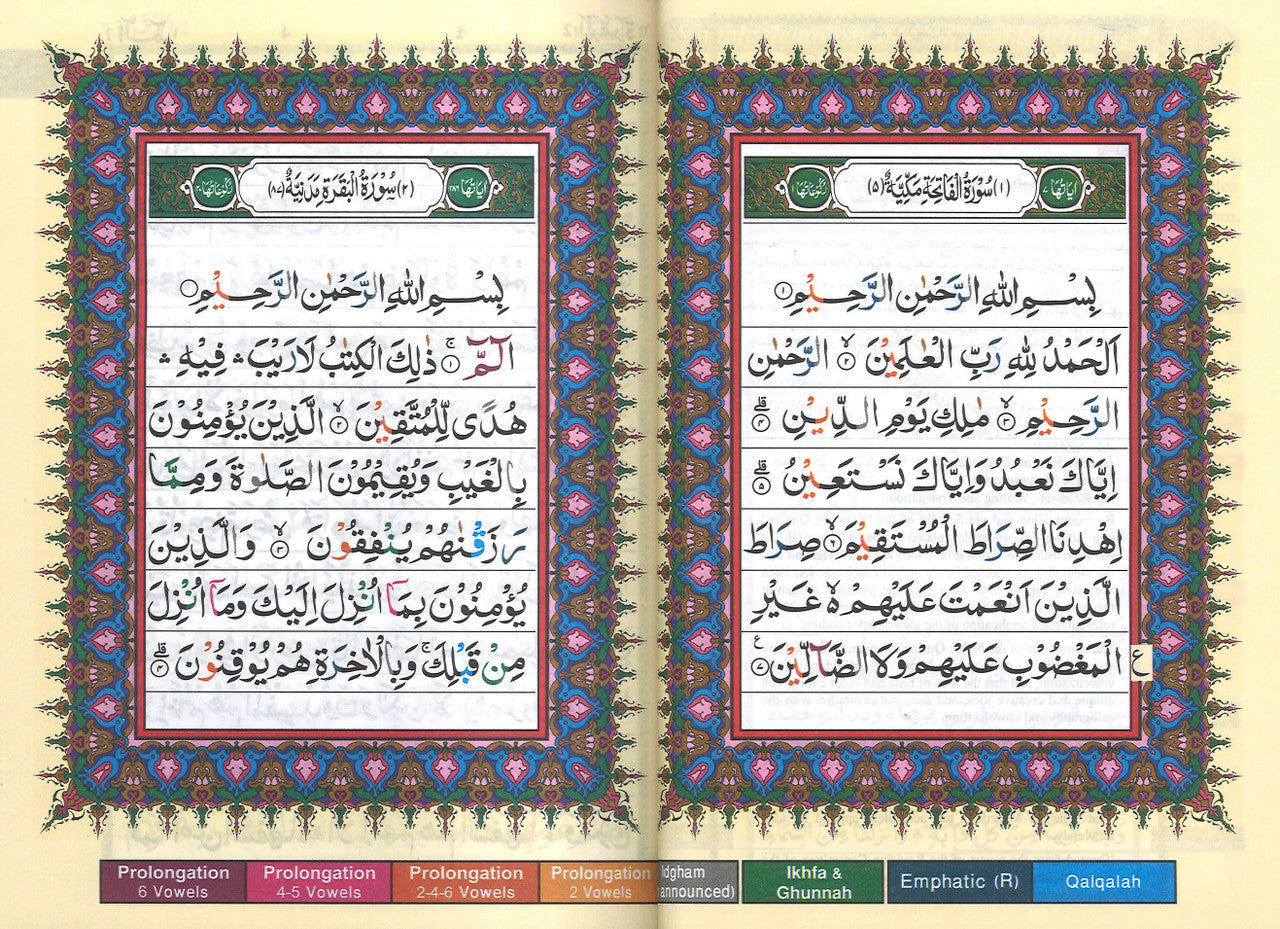 اٰیَاتُهَا ٧ (١) سُوْرَةُ الْفَاتِحَةِ مَكِّيَّةٌ (٥) رُكُوْعَاتُهَا ١
بِسْمِ اللهِ الرَّحْمٰنِ الرَّحِيْمِ ١
اَلْحَمْدُ لِلّٰهِ رَبِّ الْعٰلَمِيْنَ ۙ ٢ الرَّحْمٰنِ
الرَّحِيْمِ ۙ ٣ مٰلِكِ يَوْمِ الدِّيْنِ ؕ ٤
اِيَّاكَ نَعْبُدُ وَاِيَّاكَ نَسْتَعِيْنُ ؕ ٥
اِهْدِنَا الصِّرَاطَ الْمُسْتَقِيْمَ ۙ ٦ صِرَاطَ
الَّذِيْنَ اَنْعَمْتَ عَلَيْهِمْ ۙ۬ غَيْرِ
الْمَغْضُوْبِ عَلَيْهِمْ وَلَا الضَّآلِّيْنَ ٧ ع
اٰیَاتُهَا ٢٨٦ (٢) سُوْرَةُ الْبَقَرَةِ مَدَنِيَّةٌ (٨٧) رُكُوْعَاتُهَا ٤٠
بِسْمِ اللهِ الرَّحْمٰنِ الرَّحِيْمِ
الٓمّٓ ۚ ١ ذٰلِكَ الْكِتٰبُ لَا رَيْبَ ۛ فِيْهِ ۛ
هُدًى لِّلْمُتَّقِيْنَ ۙ ٢ الَّذِيْنَ يُؤْمِنُوْنَ
بِالْغَيْبِ وَيُقِيْمُوْنَ الصَّلٰوةَ وَمِمَّا
رَزَقْنٰهُمْ يُنْفِقُوْنَ ۙ ٣ وَالَّذِيْنَ
يُؤْمِنُوْنَ بِمَآ اُنْزِلَ اِلَيْكَ وَمَآ اُنْزِلَ
مِنْ قَبْلِكَ ۚ وَبِالْاٰخِرَةِ هُمْ يُوْقِنُوْنَ ؕ ٤
Prolongation 6 Vowels
Prolongation 4-5 Vowels
Prolongation 2-4-6 Vowels
Prolongation 2 Vowels
Idgham announced)
Ikhfa & Ghunnah
Emphatic (R)
Qalqalah